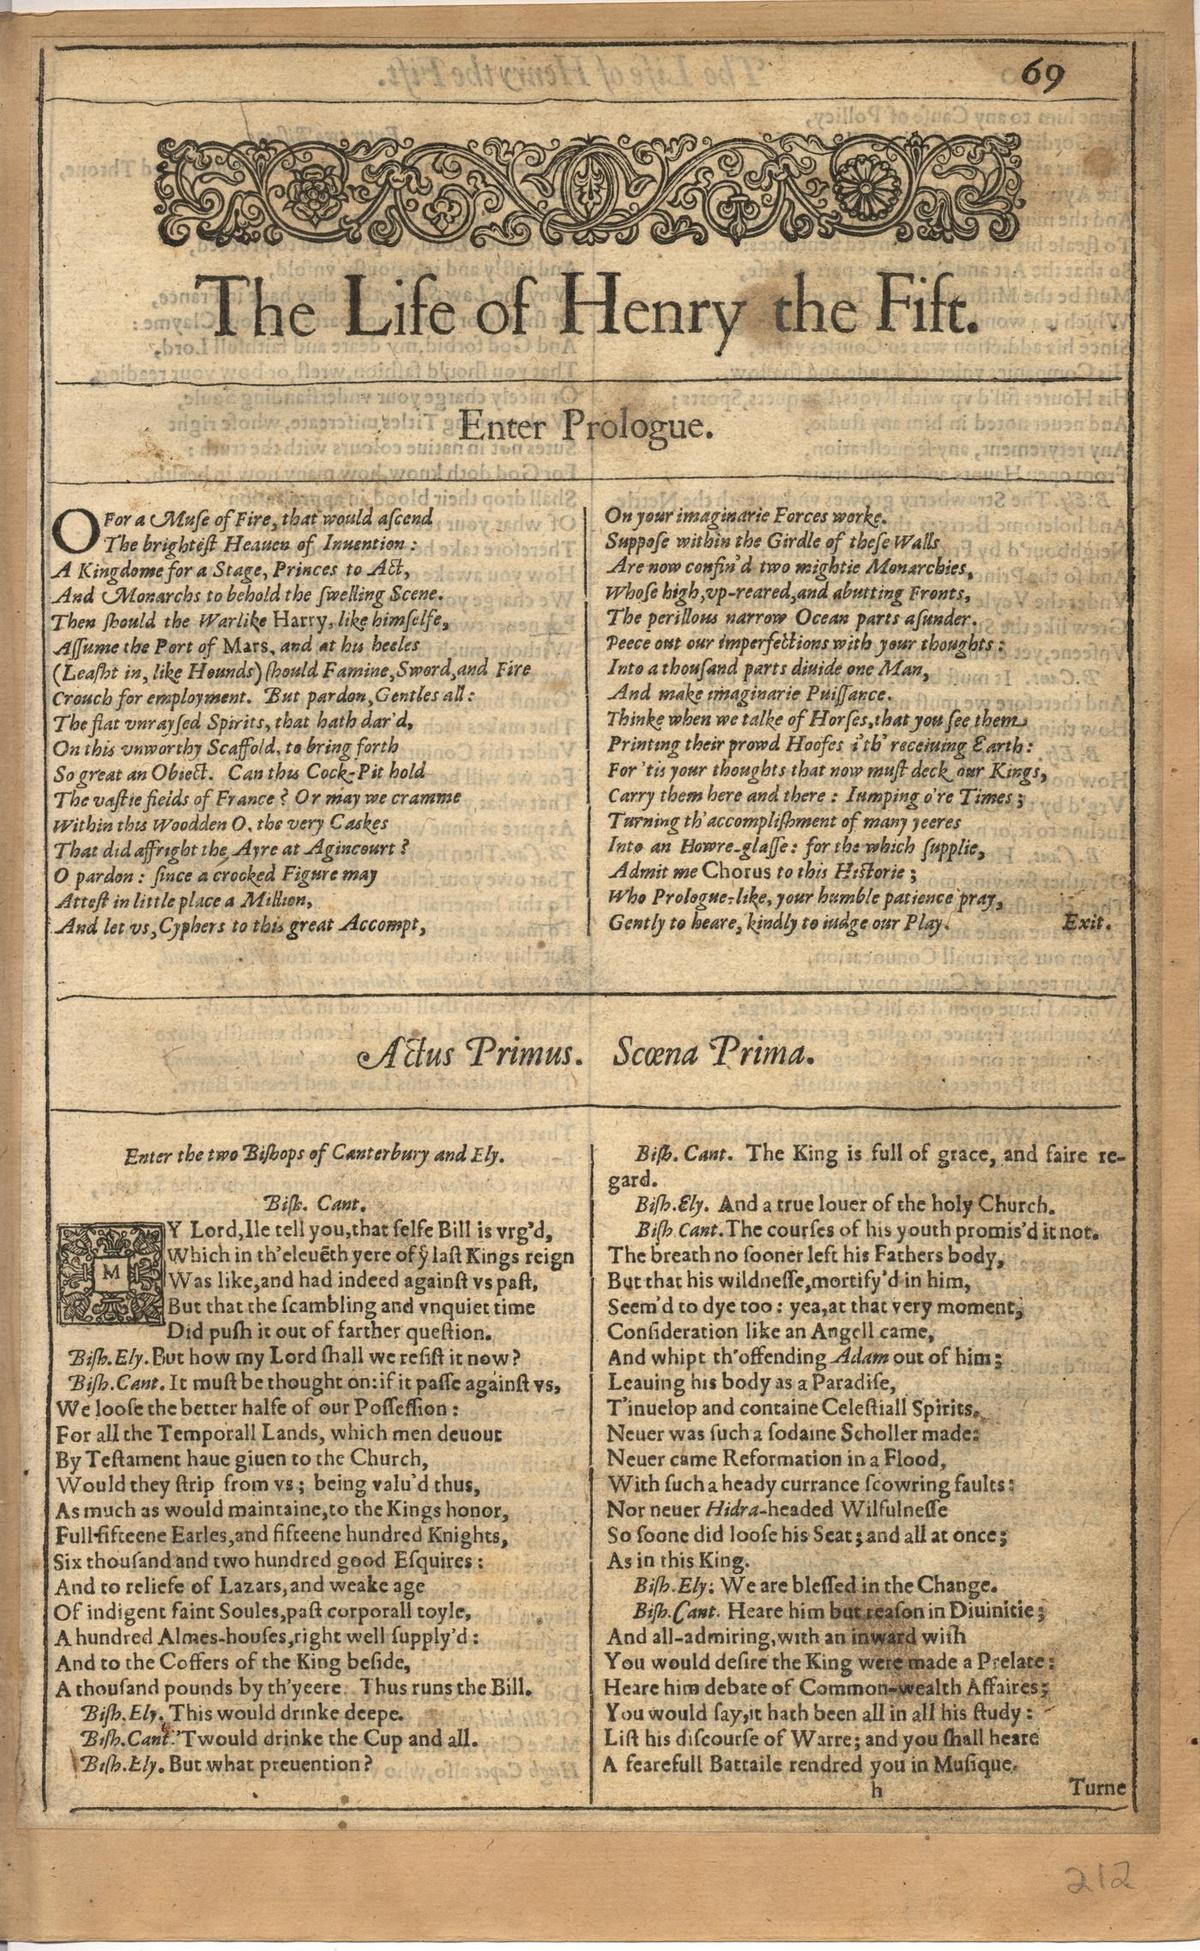 69
The Life of Henry the Fift.
Enter Prologue.
O For a Muſe of Fire, that would aſcend
The brighteſt Heauen of Inuention:
A Kingdome for a Stage, Princes to Act,
And Monarchs to behold the ſwelling Scene.
Then ſhould the Warlike Harry, like himſelfe,
Aſſume the Port of Mars, and at his heeles
(Leaſht in, like Hounds) ſhould Famine, Sword, and Fire
Crouch for employment. But pardon, Gentles all:
The flat vnrayſed Spirits, that hath dar'd,
On this vnworthy Scaffold, to bring forth
So great an Obiect. Can this Cock-Pit hold
The vaſtie fields of France? Or may we cramme
Within this Woodden O, the very Caskes
That did affright the Ayre at Agincourt?
O pardon: ſince a crooked Figure may
Atteſt in little place a Million,
And let vs, Cyphers to this great Accompt,
On your imaginarie Forces worke.
Suppoſe within the Girdle of theſe Walls
Are now confin'd two mightie Monarchies,
Whoſe high, vp-reared, and abutting Fronts,
The perillous narrow Ocean parts aſunder.
Peece out our imperfections with your thoughts:
Into a thouſand parts diuide one Man,
And make imaginarie Puiſſance.
Thinke when we talke of Horſes, that you ſee them
Printing their prowd Hoofes i'th' receiuing Earth:
For 'tis your thoughts that now muſt deck our Kings,
Carry them here and there: Iumping o're Times;
Turning th'accompliſhment of many yeeres
Into an Howre-glaſſe: for the which ſupplie,
Admit me Chorus to this Hiſtorie;
Who Prologue-like, your humble patience pray,
Gently to heare, kindly to iudge our Play. Exit.
Actus Primus. Scœna Prima.
Enter the two Biſhops of Canterbury and Ely.
Biſh. Cant.
MY Lord, Ile tell you, that ſelfe Bill is vrg'd,
Which in th'eleuēth yere of yͤ laſt Kings reign
Was like, and had indeed againſt vs paſt,
But that the ſcambling and vnquiet time
Did puſh it out of farther queſtion.
Biſh.Ely. But how my Lord ſhall we reſiſt it now?
Biſh.Cant. It muſt be thought on: if it paſſe againſt vs,
We looſe the better halfe of our Poſſeſſion:
For all the Temporall Lands, which men deuout
By Teſtament haue giuen to the Church,
Would they ſtrip from vs; being valu'd thus,
As much as would maintaine, to the Kings honor,
Full fifteene Earles, and fifteene hundred Knights,
Six thouſand and two hundred good Eſquires:
And to reliefe of Lazars, and weake age
Of indigent faint Soules, paſt corporall toyle,
A hundred Almes-houſes, right well ſupply'd:
And to the Coffers of the King beſide,
A thouſand pounds by th'yeere. Thus runs the Bill.
Biſh.Ely. This would drinke deepe.
Biſh.Cant. 'Twould drinke the Cup and all.
Biſh.Ely. But what preuention?
Biſh. Cant. The King is full of grace, and faire re-
gard.
Biſh.Ely. And a true louer of the holy Church.
Biſh.Cant. The courſes of his youth promis'd it not.
The breath no ſooner left his Fathers body,
But that his wildneſſe, mortify'd in him,
Seem'd to dye too: yea, at that very moment,
Conſideration like an Angell came,
And whipt th'offending Adam out of him;
Leauing his body as a Paradiſe,
T'inuelop and containe Celeſtiall Spirits.
Neuer was ſuch a ſodaine Scholler made:
Neuer came Reformation in a Flood,
With ſuch a heady currance ſcowring faults:
Nor neuer Hidra-headed Wilfulneſſe
So ſoone did looſe his Seat; and all at once;
As in this King.
Biſh.Ely. We are bleſſed in the Change.
Biſh.Cant. Heare him but reaſon in Diuinitie;
And all-admiring, with an inward wiſh
You would deſire the King were made a Prelate:
Heare him debate of Common-wealth Affaires;
You would ſay, it hath been all in all his ſtudy:
Liſt his diſcourſe of Warre; and you ſhall heare
A fearefull Battaile rendred you in Muſique.
h Turne
212